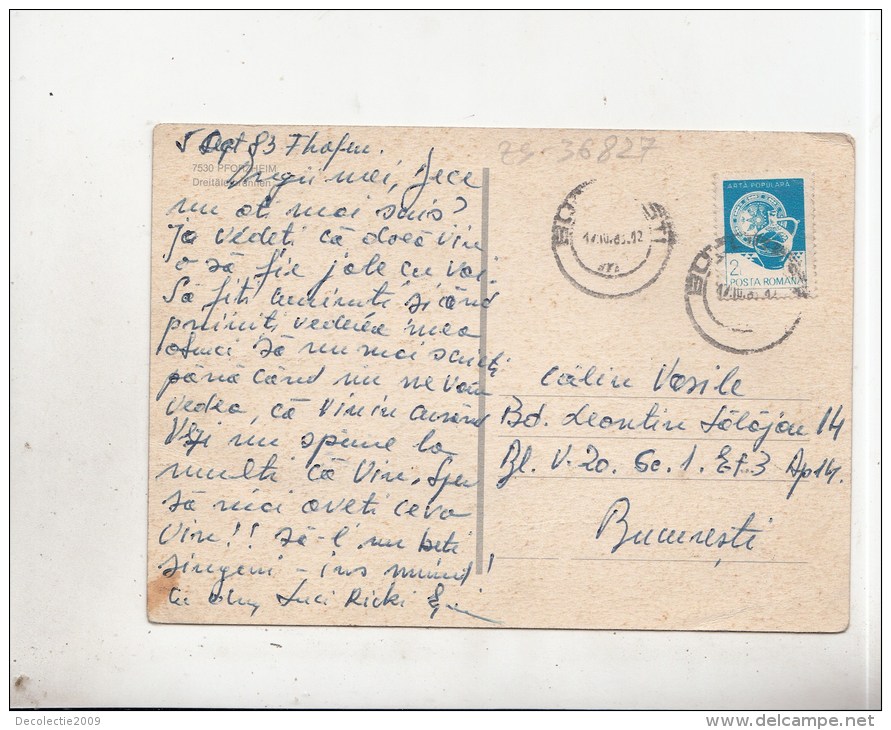 5 Sept 83
7530 PFORZHEIM
Dreitälerbrunnen
Dragii mei, de ce
nu ati mai scris?
Ia vedeti că dacă vin
o să fie jale cu voi
Să fiti cuminti, și când
primiti vederea mea
atunci să nu mai scrieti
până când nu ne vom
vedea, că vin in curând
nu spune la
multi că vin. Sper
să mai aveti ceva
vin!! Să-l nu beti
singuri
cu drag Luci Ricki
ZG-36827
BUCUREȘTI
17.10.83.12
ARTĂ POPULARĂ
2L
POSTA ROMANA
Călin Vasile
Bd. Leontin Sălăjan 14
Bl. V-20. Sc. 1. Et. 3 Ap 14.
București
Decolectie2009
www.delcampe.net